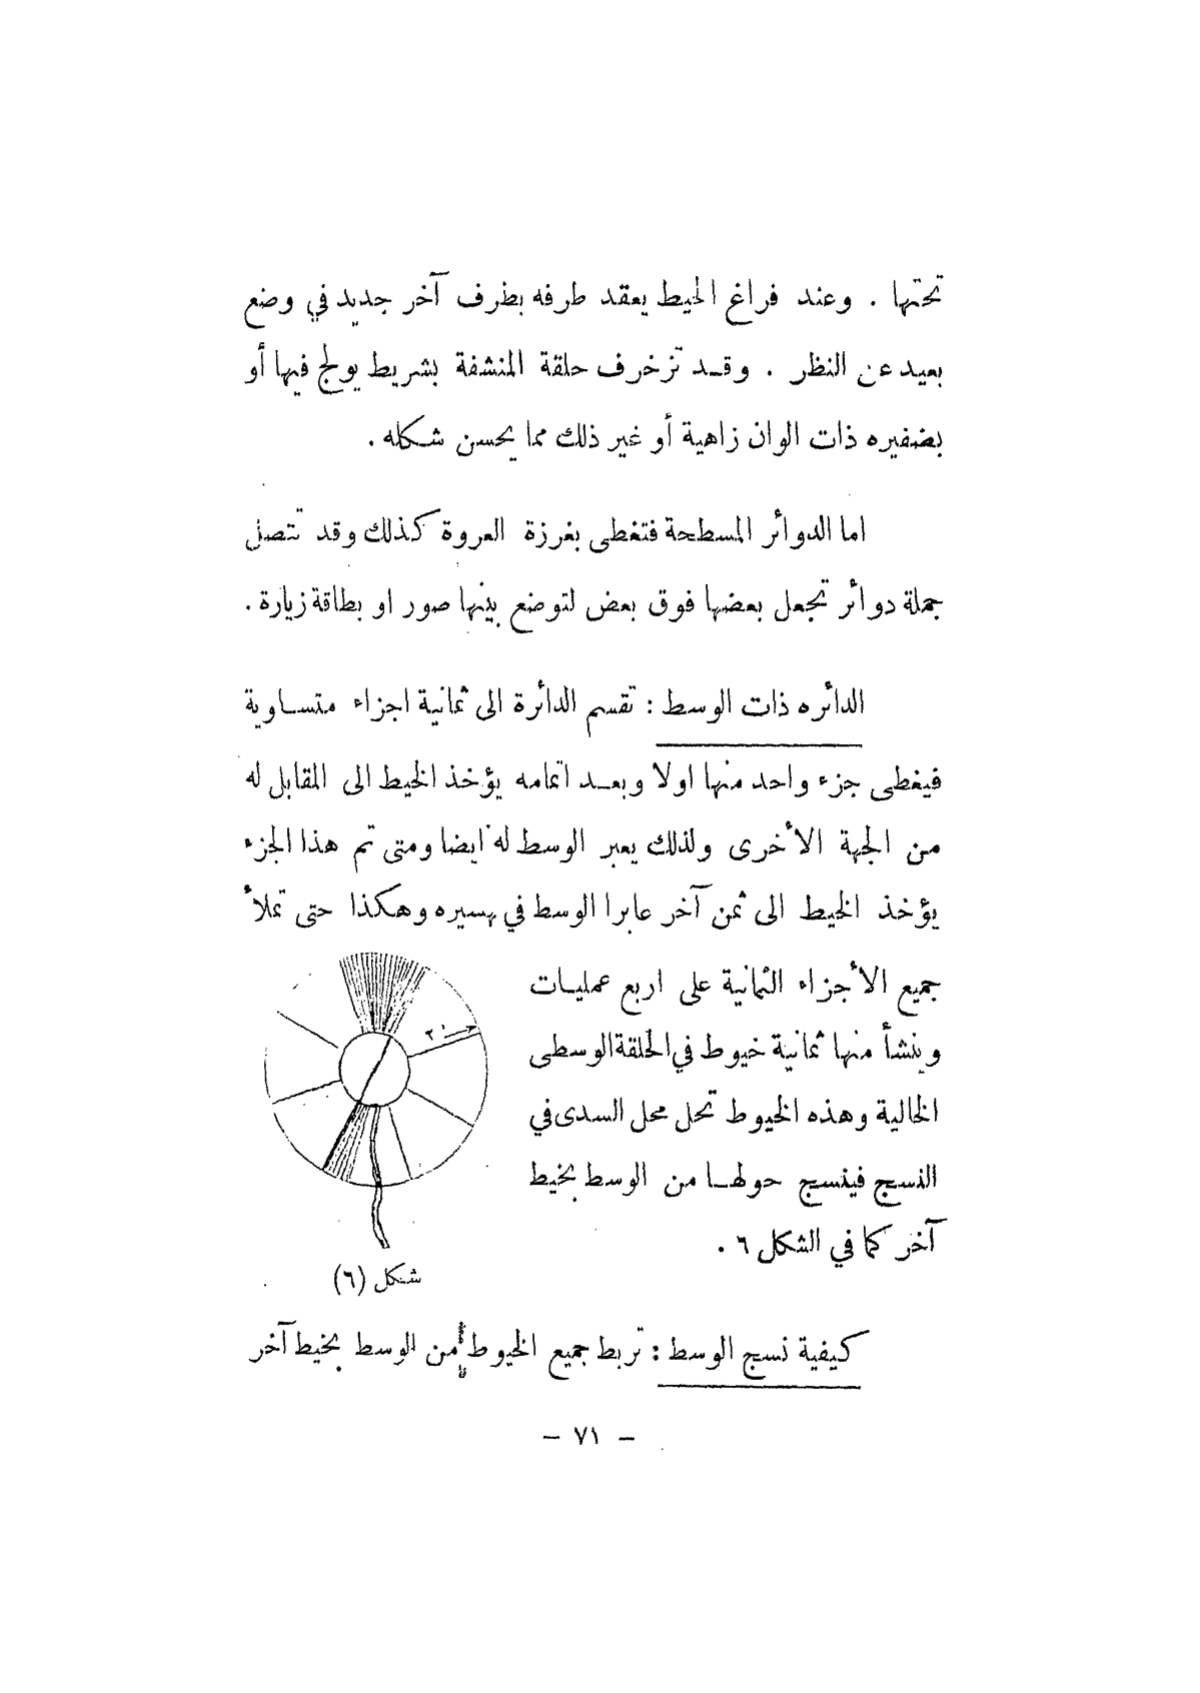 تحتها . وعند فراغ الخيط يعقد طرفه بطرف آخر جديد في وضع
بعيد عن النظر . وقد تزخرف حلقة المنشفة بشريط يولج فيها أو
بضفيره ذات الوان زاهية أو غير ذلك مما يحسن شكله .
اما الدوائر المسطحة فتغطى بغرزة العروة كذلك وقد تتصل
جملة دوائر تجعل بعضها فوق بعض لتوضع بينها صور او بطاقة زيارة .
الدائره ذات الوسط : تقسم الدائرة الى ثمانية اجزاء متساوية
فيغطى جزء واحد منها اولا وبعد اتمامه يؤخذ الخيط الى المقابل له
من الجهة الأخرى ولذلك يعبر الوسط له ايضا ومتى تم هذا الجزء
يؤخذ الخيط الى ثمن آخر عابرا الوسط في سيره وهكذا حتى تملأ
جميع الأجزاء الثمانية على اربع عمليات
وينشأ منها ثمانية خيوط في الحلقة الوسطى
الخالية وهذه الخيوط تحل محل السدى في
النسج فينسج حولها من الوسط بخيط
آخر كما في الشكل ٦ .
شكل (٦)
كيفية نسج الوسط : تربط جميع الخيوط من الوسط بخيط آخر
— ٧١ —